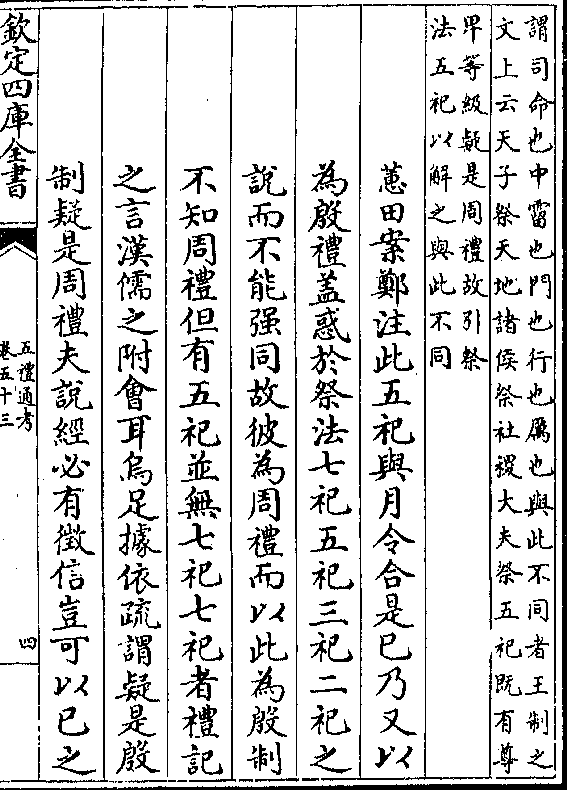 謂司命也中霤也門也行也厲也與此不同者王制之
文上云天子祭天地諸侯祭社稷大夫祭五祀既有尊
卑等級疑是周禮故引祭
法五祀以解之與此不同
蕙田案鄭注此五祀與月令合是巳乃又以
為殷禮蓋惑於祭法七祀五祀三祀二祀之
說而不能强同故彼為周禮而以此為殷制
不知周禮但有五祀並無七祀七祀者禮記
之言漢儒之附會耳烏足據依疏謂疑是殷
制疑是周禮夫說經必有徵信豈可以已之
欽定四庫全書
五禮通考
卷五十三
四